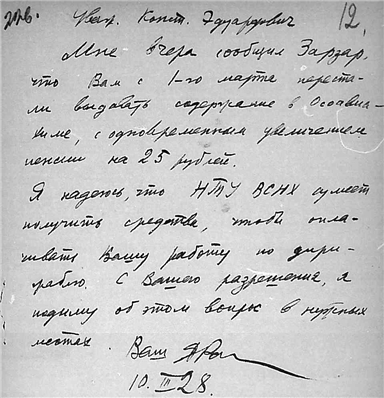 Уваж. Конст. Эдуардович 12.
Мне вчера сообщил Зарзар,
что Вам с 1-го марта переста-
ли выдавать содержание в Осоавиа-
химе, с одновременным увеличением
пенсии на 25 рублей.
Я надеюсь, что НТУ ВСНХ сумеет
получить средства, чтобы опла-
чивать Вашу работу по дири-
жаблю. С Вашего разрешения, я
подыму об этом вопрос в нужных
местах.
Ваш
10.III 28.